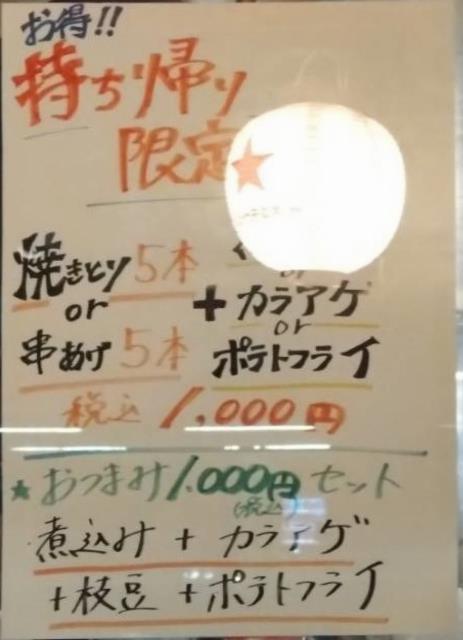 お得!!
持ち帰り
限定
焼きとり 5本
or
串あげ 5本
or
+ カラアゲ
or
ポテトフライ
税込 1,000円
★おつまみ1,000円セット
(税込)
煮込み + カラアゲ
+枝豆 +ポテトフライ